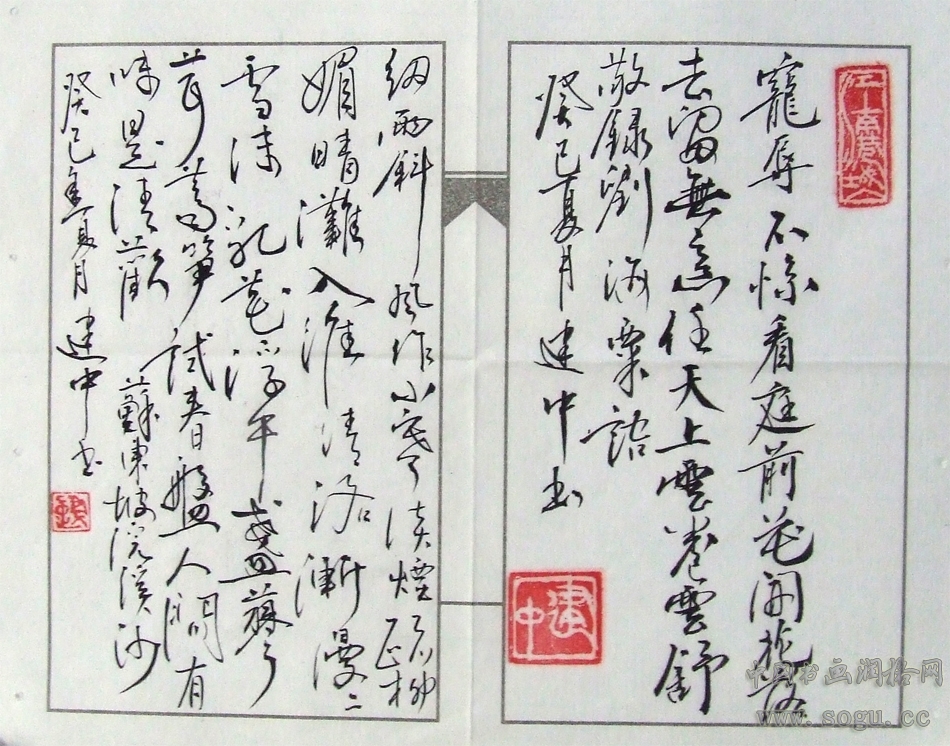 寵辱不惊看庭前花開花落
去留無意任天上雲卷雲舒
敬録劉海粟語
癸巳夏月建中书
建中
細雨斜風作小寒淡煙疏柳
媚晴灘入淮清洛漸漫二
雪沫乳花浮午盞蓼
茸蒿筍試春盤人間有
味是清歡 蘇東坡浣溪沙
癸巳夏月建中书
www.sogu.cc